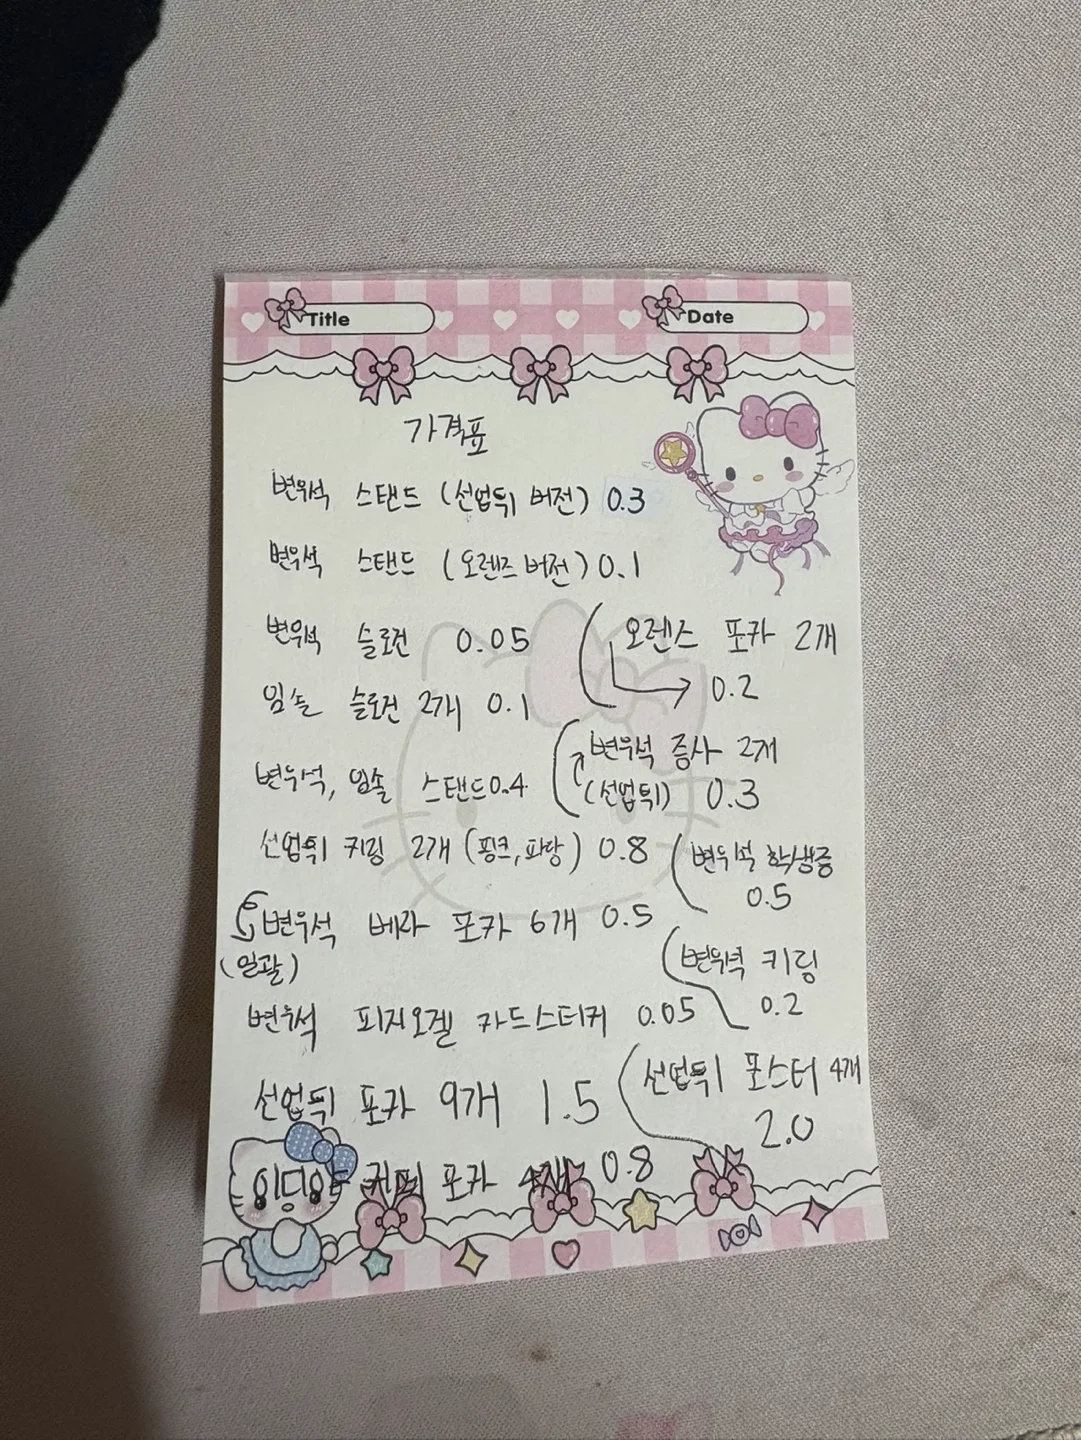 Title
Date
가격표
변우석 스탠드 (선업튀 버전) 0.3
변우석 스탠드 (오렌즈 버전) 0.1
변우석 슬로건 0.05
오렌즈 포카 2개
0.2
임솔 슬로건 2개 0.1
변우석 증사 2개
(선업튀) 0.3
변우석, 임솔 스탠드 0.4
선업튀 키링 2개 (핑크, 파랑) 0.8
변우석 학생증
0.5
변우석 베라 포카 6개 0.5
(일괄)
변우석 키링
0.2
변우석 피지오겔 카드스티커 0.05
선업튀 포스터 4개
2.0
선업튀 포카 9개 1.5
이디야 커피 포카 4개 0.8